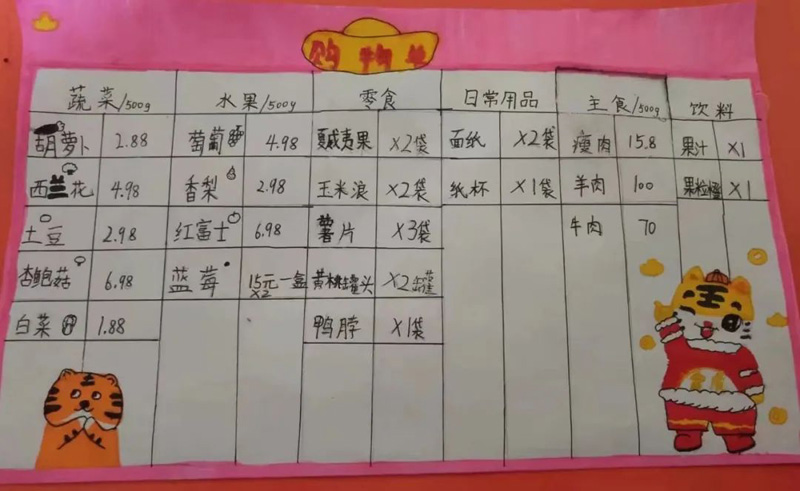 购物单
蔬菜/500g 水果/500g 零食 日常用品 主食/500g 饮料
胡萝卜 2.88 葡萄 4.98 夏威夷果 ×2袋 面纸 ×2袋 瘦肉 15.8 果汁 ×1
西兰花 4.98 香梨 2.98 玉米浪 ×2袋 纸杯 ×1袋 羊肉 100 果粒橙 ×1
土豆 2.98 红富士 6.98 薯片 ×3袋 牛肉 70
杏鲍菇 6.98 蓝莓 15元一盒 ×2 黄桃罐头 ×2罐
白菜 1.88 鸭脖 ×1袋